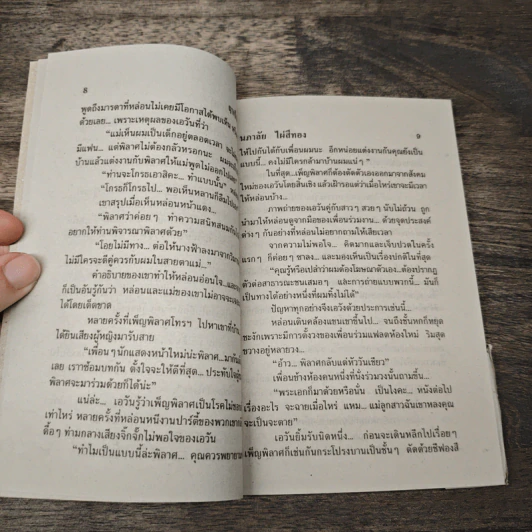 8
พูดถึงมารดาที่หล่อนไม่เคยมีโอกาสได้พบเลย
ด้วยเลย... เพราะเหตุผลของเอวันที่ว่า
"แม่เห็นผมเป็นเด็กอยู่ตลอดเวลา
มีแฟน... แต่พิลาศไม่ต้องกลัวหรอกนะ
บ้านแล้วแต่งงานกับพิลาศให้แม่พูดไม่ออกไป
"ท่านจะโกรธเอาสิคะ... ทำแบบนั้น"
"โกรธก็โกรธไป... พอเห็นหลานก็ลืม
เขาสรุปเมื่อเห็นหล่อนหน้าแดง...
"พิลาศว่าค่อยๆ ทำความสนิทสนม
อยากให้ท่านพิจารณาพิลาศด้วย"
"โอยไม่มีทาง... ต่อให้นางฟ้าลงมาจาก
ไม่มีใครจะดีคู่ควรกับผมในสายตาแม่..."
คำอธิบายของเขาทำให้หล่อนอ่อนใจ...
ก็เป็นอันรู้กันว่า หล่อนและแม่ของเขาไม่อาจจะ
ได้โดยเด็ดขาด
หลายครั้งที่เพ็ญพิลาศโทรฯ ไปหาเขาที่บ้าน
ได้ยินเสียงผู้หญิงมารับสาย
"เพื่อนๆ นักแสดงหน้าใหม่น่ะพิลาศ...
เลย เราซ้อมบทกัน ตั้งใจจะให้ดีที่สุด...
พิลาศจะมาร่วมด้วยก็ได้นะ"
แน่ล่ะ... เอวันรู้ว่าเพ็ญพิลาศเป็นโรคไม่ชอบ
เท่าไหร่ หลายครั้งที่หล่อนหนีงานปาร์ตี้ของพวกเขา
ดื้อๆ ท่ามกลางเสียงจิ๊กจั๊กไม่พอใจของเอวัน
"ทำไมเป็นแบบนี้ล่ะพิลาศ... คุณควรพยายาม
นภาลัย ไผ่สีทอง 9
ให้ไปกันได้กับเพื่อนผมนะ อีกหน่อยแต่งงานกันคุณยังเป็น
แบบนี้... คงไม่มีใครกล้ามาบ้านผมแน่ๆ"
ในที่สุด...เพ็ญพิลาศก็ต้องตัดตัวเองออกมาจากสังคม
ใหม่ของเอวันโดยสิ้นเชิง แล้วเฝ้ารอแต่ว่าเมื่อไหร่เขาจะมีเวลา
ให้หล่อนบ้าง...
ภาพถ่ายของเอวันคู่กับสาวๆ สวยๆ นับไม่ถ้วน ถูก
นำมาให้หล่อนดูจากมือของเพื่อนร่วมงาน... ด้วยจุดประสงค์
ต่างๆ กันอย่างที่หล่อนไม่อยากถามให้เสียเวลา
จากความไม่พอใจ... คิดมากและเจ็บปวดในครั้ง
แรกๆ ก็ค่อยๆ ซาลง... และมองเห็นเป็นเรื่องปกติในที่สุด
"คุณรู้หรือเปล่าว่าผมต้องโฆษณาตัวเอง...ต้องปรากฏ
ตัวต่อสาธารณะชนเสมอๆ และการถ่ายแบบพวกนี้... มันก็
เป็นทางได้อย่างหนึ่งที่ผมทิ้งไม่ได้"
ปัญหาทุกอย่างจึงเอวังด้วยประการเช่นนี้...
หล่อนเดินคล้องแขนเขาขึ้นไป... จนถึงชั้นหกก็หยุด
ชะงักเพราะมีการตั้งวงของเพื่อนร่วมแฟลตห้องใหม่ ริมสุด
ขวางอยู่หลายวง...
"อ้าว... พิลาศกลับแต่หัววันเชียว"
เพื่อนข้างห้องคนหนึ่งที่นั่งร่วมวงนั้นถามขึ้น...
"พระเอกก็มาด้วยหรือนั่น เป็นไงคะ... หนังต่อไป
เรื่องอะไร จะฉายเมื่อไหร่ แหม... แม่ลูกสาวฉันเขาหลงคุณ
จะเป็นจะตาย"
เอวันยิ้มรับนิดหนึ่ง... ก่อนจะเดินหลีกไปเรื่อยๆ
เพ็ญพิลาศก็เช่นกันกระโปรงบานเป็นชั้นๆ ตัดด้วยชีฟองสี